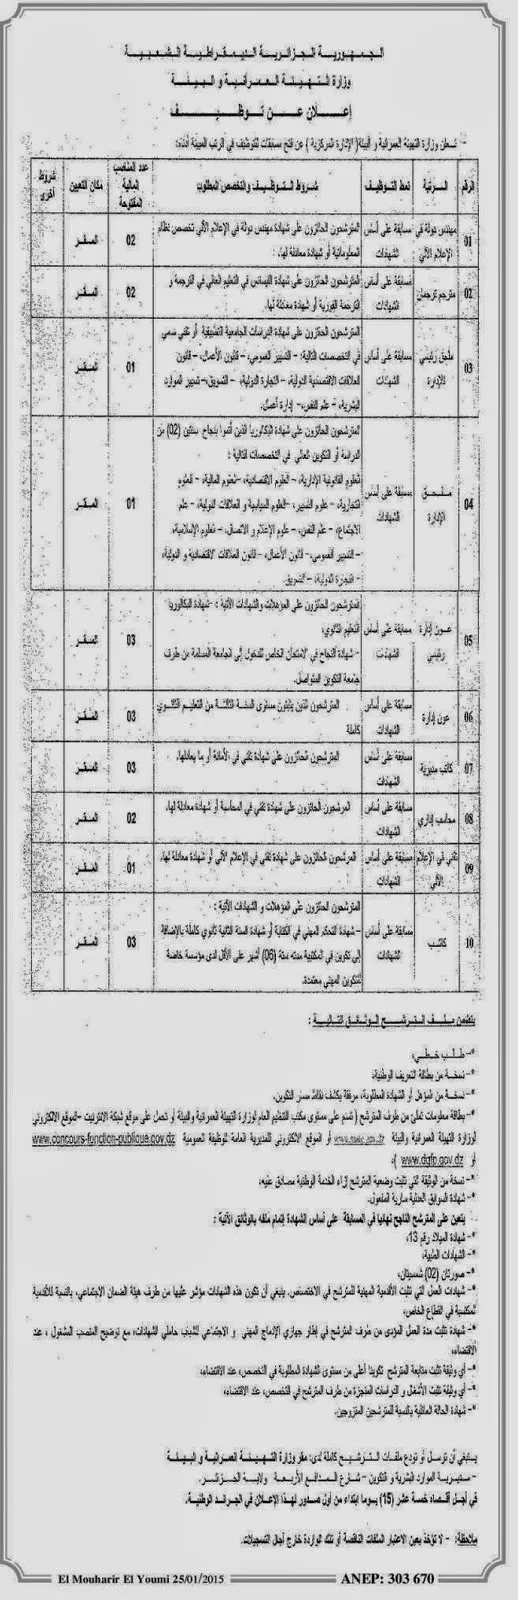 الجمهورية الجزائرية الديمقراطية الشعبية
وزارة التهيئة العمرانية و البيئة
إعلان عن توظيف
- تعلن وزارة التهيئة العمرانية و البيئة (الإدارة المركزية) عن فتح مسابقات للتوظيف في الرتب المبينة أدناه:
الرقم
الرتبة
نمط التوظيف
شروط التوظيف والتخصص المطلوب
عدد المناصب المالية المفتوحة
مكان التعيين
شروط أخرى
01
مهندس دولة في الإعلام الآلي
مسابقة على أساس الشهادات
المترشحون الحائزون على شهادة مهندس دولة في الإعلام الآلي تخصص نظام المعلوماتية أو شهادة معادلة لها.
02
المقر
02
مترجم ترجمان
مسابقة على أساس الشهادات
المترشحون الحائزون على شهادة الليسانس في التعليم العالي في الترجمة و الترجمة الفورية أو شهادة معادلة لها.
02
المقر
03
ملحق رئيسي للإدارة
مسابقة على أساس الشهادات
المترشحون الحائزون على شهادة الدراسات الجامعية التطبيقية أو تقني سامي
في التخصصات التالية: - التسيير العمومي، - قانون الأعمال، - قانون
العلاقات الاقتصادية الدولية، - التجارة الدولية، - التسويق، - تسيير الموارد
البشرية، - علم النفس، - إدارة أعمال.
01
المقر
04
ملحق الإدارة
مسابقة على أساس الشهادات
المترشحون الحائزون على شهادة البكالوريا الذين أتموا بنجاح سنتين (02) من
الدراسة أو التكوين العالي في التخصصات التالية :
العلوم القانونية الإدارية، - العلوم الاقتصادية، - العلوم المالية، - العلوم
التجارية، - علوم التسيير، - العلوم السياسية و العلاقات الدولية، - علم
الاجتماع، - علم النفس، - علوم الإعلام و الاتصال، - العلوم الإسلامية،
- التسيير العمومي، - قانون الأعمال، - قانون العلاقات الاقتصادية و الدولية،
- التجارة الدولية، - التسويق.
01
المقر
05
عون إدارة رئيسي
مسابقة على أساس الشهادات
المترشحون الحائزون على المؤهلات والشهادات الآتية : - شهادة البكالوريا
التعليم الثانوي،
- شهادة النجاح في الامتحان الخاص للدخول إلى الجامعة المسلمة من طرف
جامعة التكوين المتواصل.
03
المقر
06
عون إدارة
مسابقة على أساس الشهادات
المترشحون الذين يثبتون مستوى السنة الثالثة من التعليم الثانوي كاملة
03
المقر
07
كاتب مديرية
مسابقة على أساس الشهادات
المترشحون الحائزون على شهادة تقني في الأمانة أو ما يعادلها.
03
المقر
08
محاسب إداري
مسابقة على أساس الشهادات
المرشحون الحائزون على شهادة تقني في المحاسبة أو شهادة معادلة لها.
02
المقر
09
تقني في الإعلام الآلي
مسابقة على أساس الشهادات
المرشحون الحائزون على شهادة تقني في الإعلام الآلي أو شهادة معادلة لها.
01
المقر
10
كاتب
مسابقة على أساس الشهادات
المترشحون الحائزون على المؤهلات و الشهادات الآتية :
- شهادة التحكم المهني في الكتابة أو شهادة السنة الثانية ثانوي كاملة بالإضافة
إلى تكوين في المكتبية مدته ستة (06) أشهر على الأقل لدى مؤسسة خاصة
للتكوين المهني معتمدة.
03
المقر
يتضمن ملف الترشح الوثائق التالية :
*- طلب خطي،
*- نسخة من بطاقة التعريف الوطنية،
*- نسخة من المؤهل أو الشهادة المطلوبة، مرفقة بكشف نقاط مسار التكوين.
*- بطاقة معلومات تملئ من طرف المترشح ( تسلم على مستوى مكتب التنظيم العام لوزارة التهيئة العمرانية والبيئة أو تحمل على موقع شبكة الانترنيت -الموقع الالكتروني
لوزارة التهيئة العمرانية والبيئة أو الموقع الالكتروني للمديرية العامة للوظيفة العمومية www.concours-fonction-publique.gov.dz
أو www.dgfp.gov.dz )،
*- نسخة من الوثيقة التي تثبت وضعية المترشح إزاء الخدمة الوطنية مصادق عليه،
*- شهادة السوابق العدلية سارية المفعول.
يتعين على المترشح الناجح نهائيا في المسابقة على أساس الشهادة إتمام ملفه بالوثائق الآتية :
*- شهادة الميلاد رقم 13،
*- الشهادات الطبية،
*- صورتان (02) شمسيتان،
*- شهادات العمل التي تثبت الأقدمية المهنية للمترشح في الاختصاص. ينبغي أن تكون هذه الشهادات مؤشر عليها من طرف هيئة الضمان الاجتماعي، بالنسبة للأقدمية
المكتسبة في القطاع الخاص،
*- شهادة تثبت مدة العمل المؤدى من طرف المترشح في إطار جهازي الإدماج المهني و الاجتماعي للشباب حاملي الشهادات، مع توضيح المنصب المشغول ، عند
الاقتضاء،
*- أي وثيقة تثبت متابعة المترشح تكوينا أعلى من مستوى الشهادة المطلوبة في التخصص، عند الاقتضاء،
*- أي وثيقة تثبت الأشغال و الدراسات المنجزة من طرف المترشح في التخصص، عند الاقتضاء،
*- شهادة الحالة العائلية بالنسبة للمترشحين المتزوجين.
ينبغي أن ترسل أو تودع ملفات الترشيح كاملة لدى: مقر وزارة التهيئة العمرانية و البيئة
- مديرية الموارد البشرية و التكوين - شارع المدافع الأربعة ولاية الجزائر.
في أجل أقصاه خمسة عشر (15) يوما ابتداء من أول صدور لهذا الإعلان في الجرائد الوطنية.
ملاحظة: - لا تؤخذ بعين الاعتبار الملفات الناقصة أو تلك الواردة خارج آجال التسجيلات.
El Mouharir El Youmi 25/01/2015
ANEP: 303 670